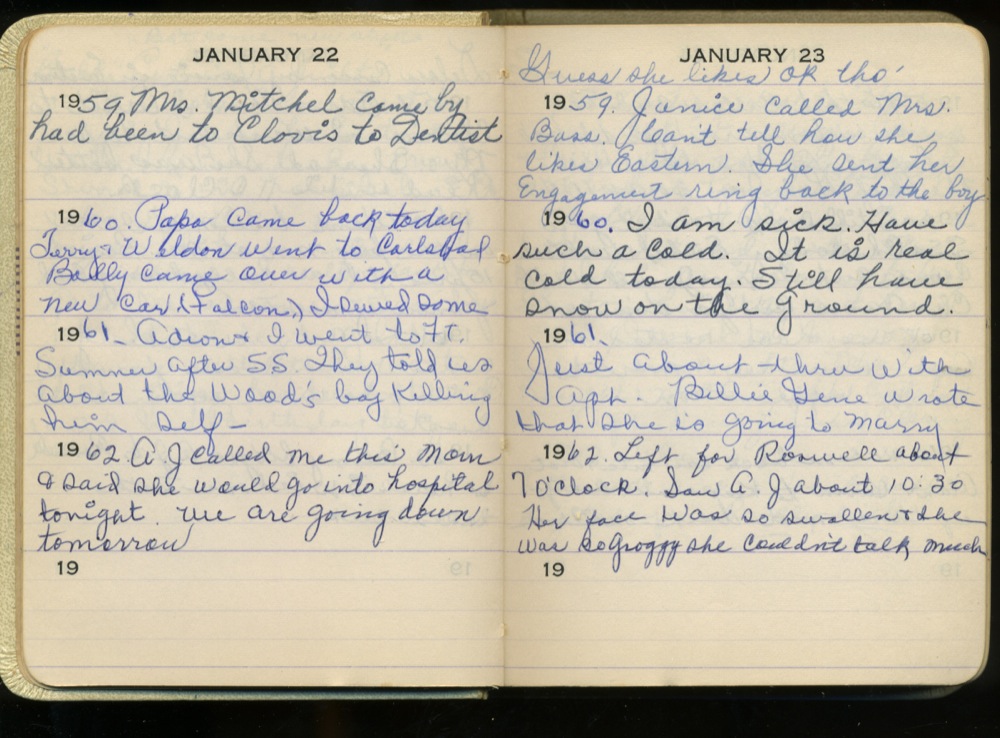 JANUARY 22
1959 Mrs. Mitchel came by
had been to Clovis to Dentist
1960. Papa came back today
Terry & Weldon went to Carlsbad
Bailly came over with a
new car (Falcon.) I sewed some
1961 - & I went to Ft.
Sumner after SS. They told us
about the Wood's boy Killing
him self -
1962. A J called me this morn
& said she would go into hospital
tonight. We are going down
tomorrow
19
JANUARY 23
Guess she likes OK tho'
1959. Janice called Mrs.
Bass. Can't tell how she
likes Eastern. She sent her
Engagement ring back to the boy
1960. I am sick. Have
such a cold. It is real
cold today. Still have
snow on the Ground.
1961.
Just about thru with
Aph. Billie Gene wrote
that she is going to marry
1962. Left for Roswell about
7 O'clock. Saw A. J about 10:30
Her face was so swollen & she
was so Groggy she couldn't talk much
19